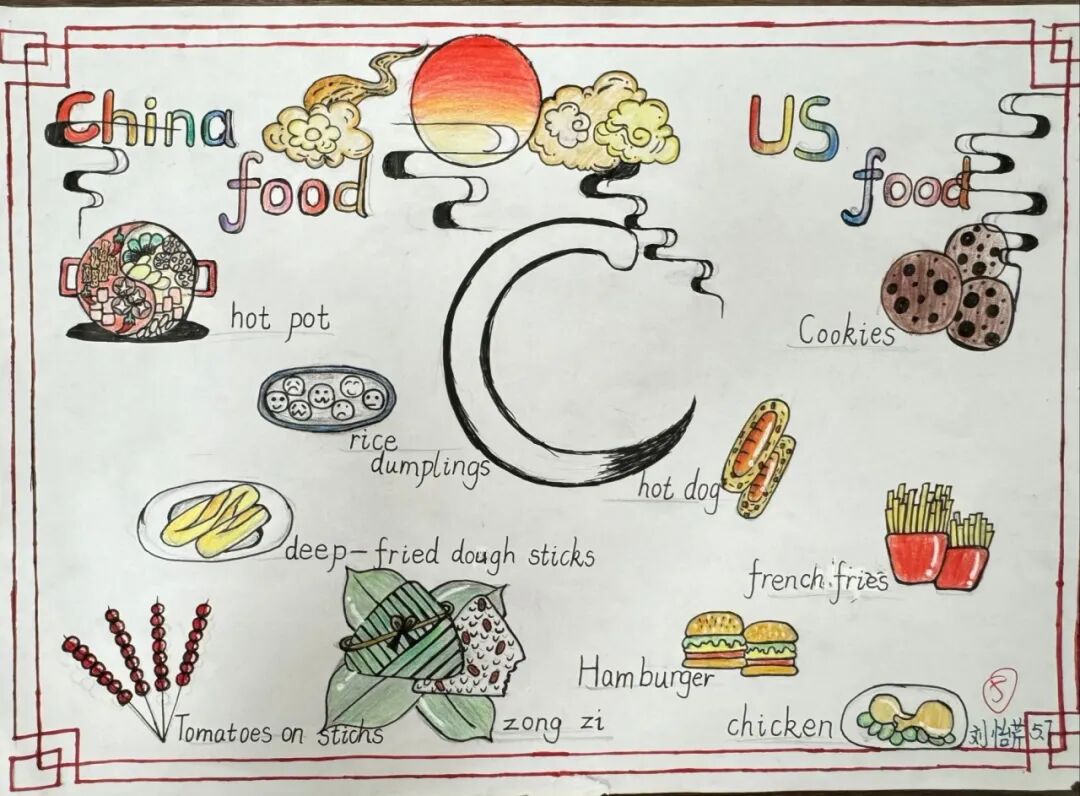 China
food
US
food
hot pot
Cookies
rice
dumplings
hot dog
deep-fried dough sticks
french fries
Hamburger
Tomatoes on stichs
zong zi
chicken
5
刘怡 5.7